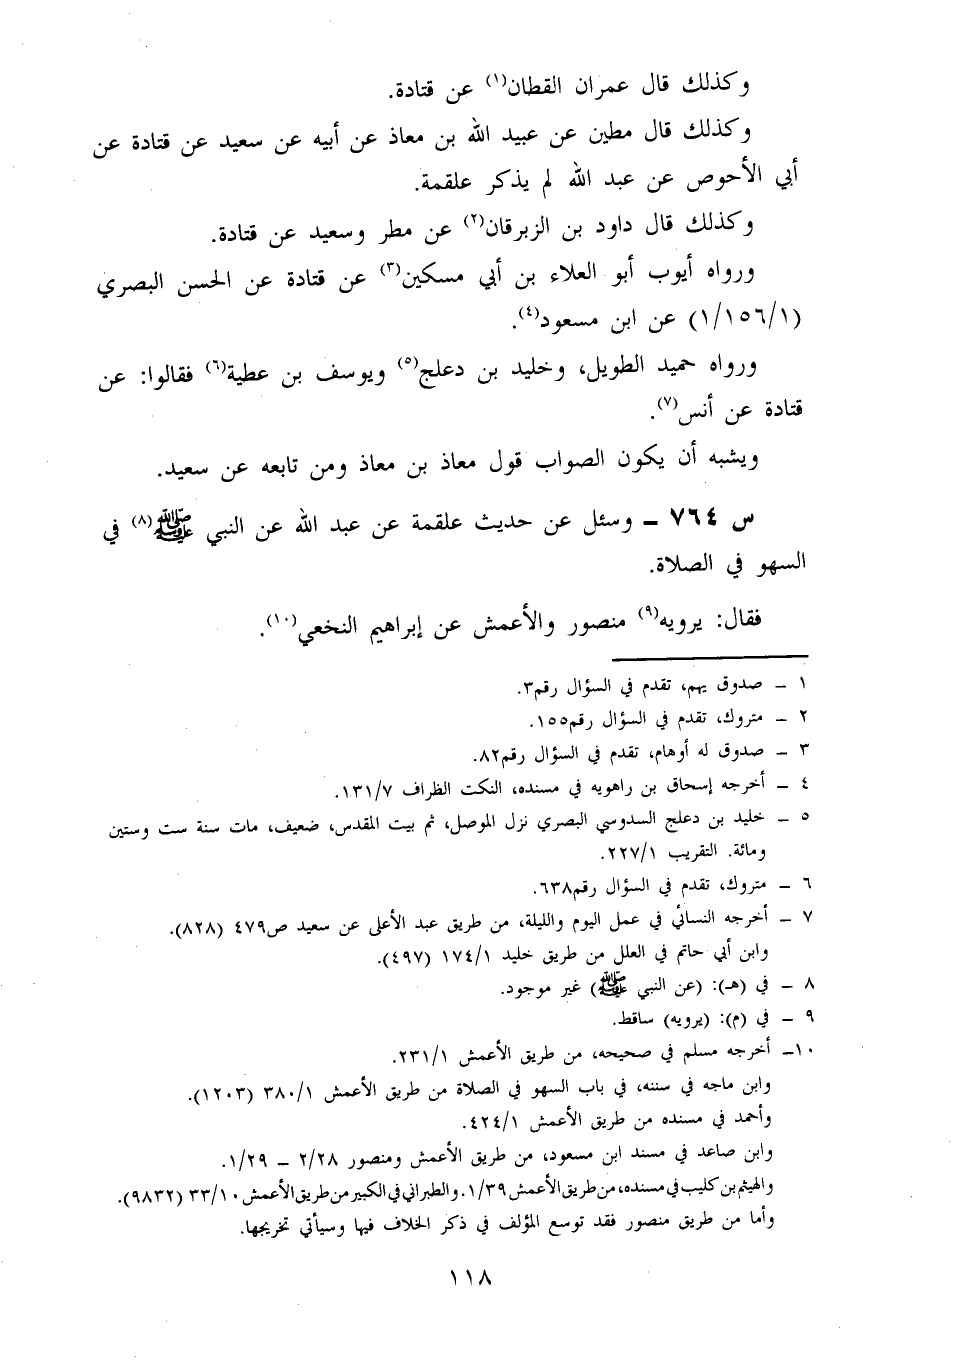 وكذلك قال عمران القطان(١) عن قتادة.
وكذلك قال مطين عن عبيد الله بن معاذ عن أبيه عن سعيد عن قتادة عن
أبي الأحوص عن عبد الله لم يذكر علقمة.
وكذلك قال داود بن الزبرقان(٢) عن مطر وسعيد عن قتادة.
ورواه أيوب أبو العلاء بن أبي مسكين(٣) عن قتادة عن الحسن البصري
(١/١٥٦/١) عن ابن مسعود(٤).
ورواه حميد الطويل، وخليد بن دعلج(٥) ويوسف بن عطية(٦) فقالوا: عن
قتادة عن أنس(٧).
ويشبه أن يكون الصواب قول معاذ بن معاذ ومن تابعه عن سعيد.
س ٧٦٤ – وسئل عن حديث علقمة عن عبد الله عن النبي ﷺ(٨) في
السهو في الصلاة.
فقال: يرويه(٩) منصور والأعمش عن إبراهيم النخعي(١٠).
١ – صدوق يهم، تقدم في السؤال رقم٣.
٢ – متروك، تقدم في السؤال رقم١٥٥.
٣ – صدوق له أوهام، تقدم في السؤال رقم٨٢.
٤ – أخرجه إسحاق بن راهويه في مسنده، النكت الظراف ١٣١/٧.
٥ – خليد بن دعلج السدوسي البصري نزل الموصل، ثم بيت المقدس، ضعيف، مات سنة ست وستين
ومائة. التقريب ٢٢٧/١.
٦ – متروك، تقدم في السؤال رقم٦٣٨.
٧ – أخرجه النسائي في عمل اليوم والليلة، من طريق عبد الأعلى عن سعيد ص٤٧٩ (٨٢٨).
وابن أبي حاتم في العلل من طريق خليد ١٧٤/١ (٤٩٧).
٨ – في (هـ): (عن النبي ﷺ) غير موجود.
٩ – في (م): (يرويه) ساقط.
١٠– أخرجه مسلم في صحيحه، من طريق الأعمش ٢٣١/١.
وابن ماجه في سننه، في باب السهو في الصلاة من طريق الأعمش ٣٨٠/١ (١٢٠٣).
وأحمد في مسنده من طريق الأعمش ٤٢٤/١.
وابن صاعد في مسند ابن مسعود، من طريق الأعمش ومنصور ٢/٢٨ – ١/٢٩.
والهيثم بن كليب في مسنده، من طريق الأعمش ١/٣٩. والطبراني في الكبير من طريق الأعمش ٣٣/١٠ (٩٨٣٢).
وأما من طريق منصور فقد توسع المؤلف في ذكر الخلاف فيها وسيأتي تخريجها.
١١٨